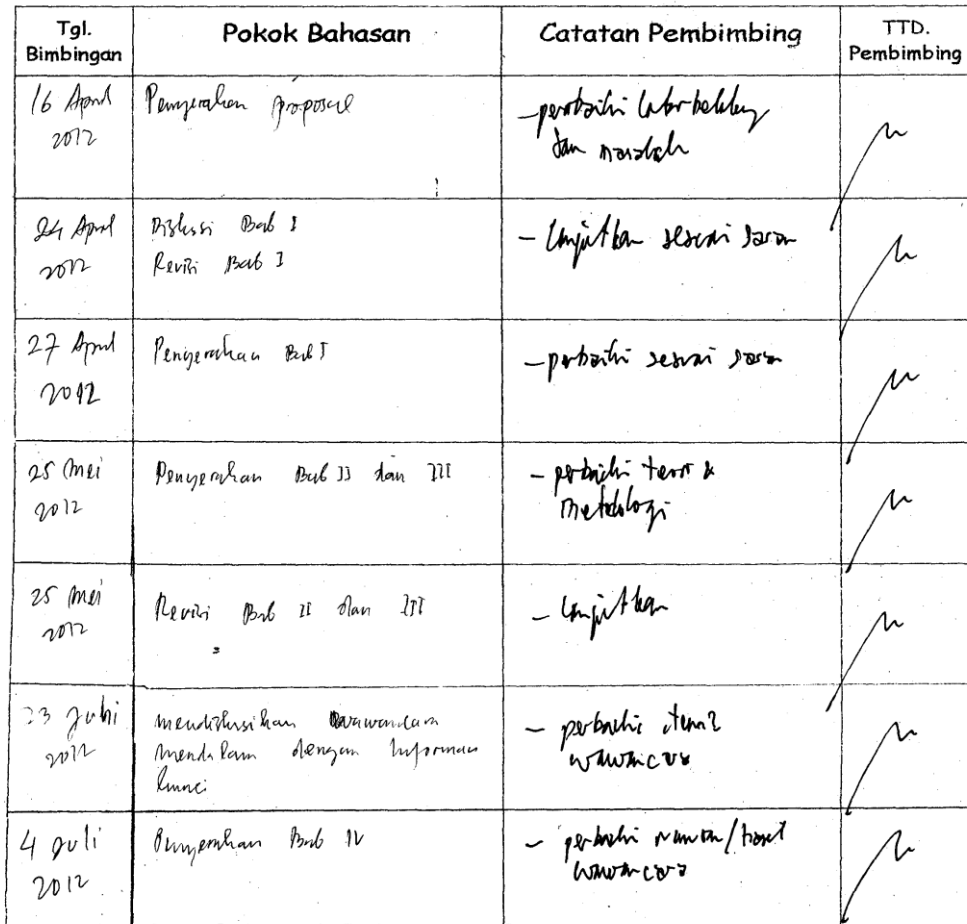 Tgl. Bimbingan
Pokok Bahasan
Catatan Pembimbing
TTD. Pembimbing
16 April 2012
Penyerahan proposal
- perbaiki latar belakang
dan masalah
24 April 2012
Diskusi Bab I
Revisi Bab I
- lanjutkan sesuai saran
27 April 2012
Penyerahan Bab I
- perbaiki sesuai saran
25 Mei 2012
Penyerahan Bab II dan III
- perbaiki teori &
metodologi
25 Mei 2012
Revisi Bab II dan III
- lanjutkan
23
2012
mendiskusikan wawancara
mendalam dengan Informan
kunci
- perbaiki item2
wawancara
4 Juli 2012
Penyerahan Bab IV
- perbaiki
wawancara